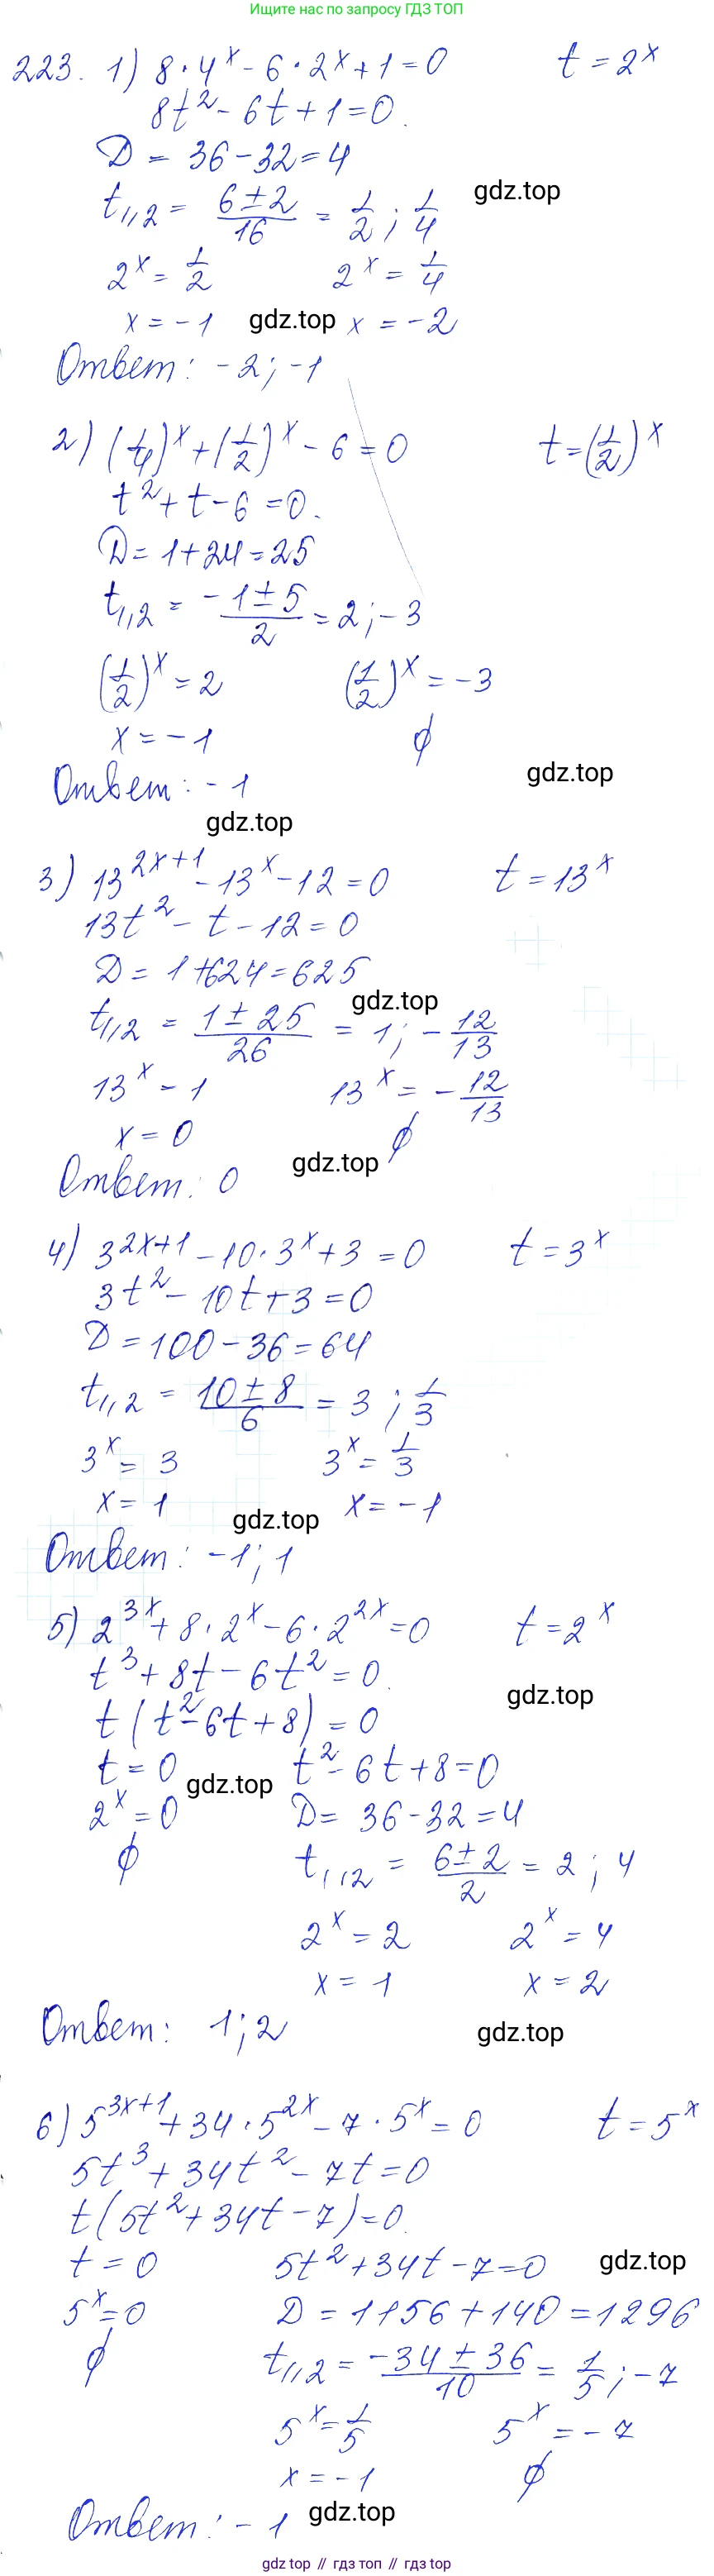 Ищите нас по запросу ГДЗ ТОП
223. 1) 8·4^x - 6·2^x + 1 = 0    t = 2^x
8t² - 6t + 1 = 0.
D = 36 - 32 = 4
t₁,₂ = (6 ± 2)/16 = 1/2; 1/4    gdz.top
2^x = 1/2    2^x = 1/4
x = -1    gdz.top    x = -2
Ответ: -2; -1
2) (1/4)^x + (1/2)^x - 6 = 0    t = (1/2)^x
t² + t - 6 = 0.
D = 1 + 24 = 25
t₁,₂ = (-1 ± 5)/2 = 2; -3
(1/2)^x = 2    (1/2)^x = -3
x = -1    ∅
Ответ: -1    gdz.top
gdz.top
3) 13^(2x+1) - 13^x - 12 = 0    t = 13^x
13t² - t - 12 = 0
D = 1 + 624 = 625
t₁,₂ = (1 ± 25)/26 = 1; -12/13    gdz.top
13^x - 1    13^x = -12/13
x = 0    ∅
Ответ: 0    gdz.top
4) 3^(2x+1) - 10·3^x + 3 = 0    t = 3^x
3t² - 10t + 3 = 0
D = 100 - 36 = 64
t₁,₂ = (10 ± 8)/6 = 3; 1/3
3^x = 3    3^x = 1/3
x = 1    gdz.top    x = -1
Ответ: -1; 1
5) 2^(3x) + 8·2^x - 6·2^(2x) = 0    t = 2^x
t³ + 8t - 6t² = 0.
gdz.top
t(t² - 6t + 8) = 0
t = 0    gdz.top    t² - 6t + 8 = 0
2^x = 0    D = 36 - 32 = 4
∅    t₁,₂ = (6 ± 2)/2 = 2; 4
2^x = 2    2^x = 4
x = 1    x = 2
Ответ: 1; 2    gdz.top
6) 5^(3x+1) + 34·5^(2x) - 7·5^x = 0    t = 5^x
5t³ + 34t² - 7t = 0
t(5t² + 34t - 7) = 0.
t = 0    5t² + 34t - 7 = 0    gdz.top
5^x = 0    D = 1156 + 140 = 1296
∅    t₁,₂ = (-34 ± 36)/10 = 1/5; -7
5^x = 1/5    5^x = -7
x = -1    ∅
Ответ: -1    gdz.top
gdz top // гдз топ // gdz.top